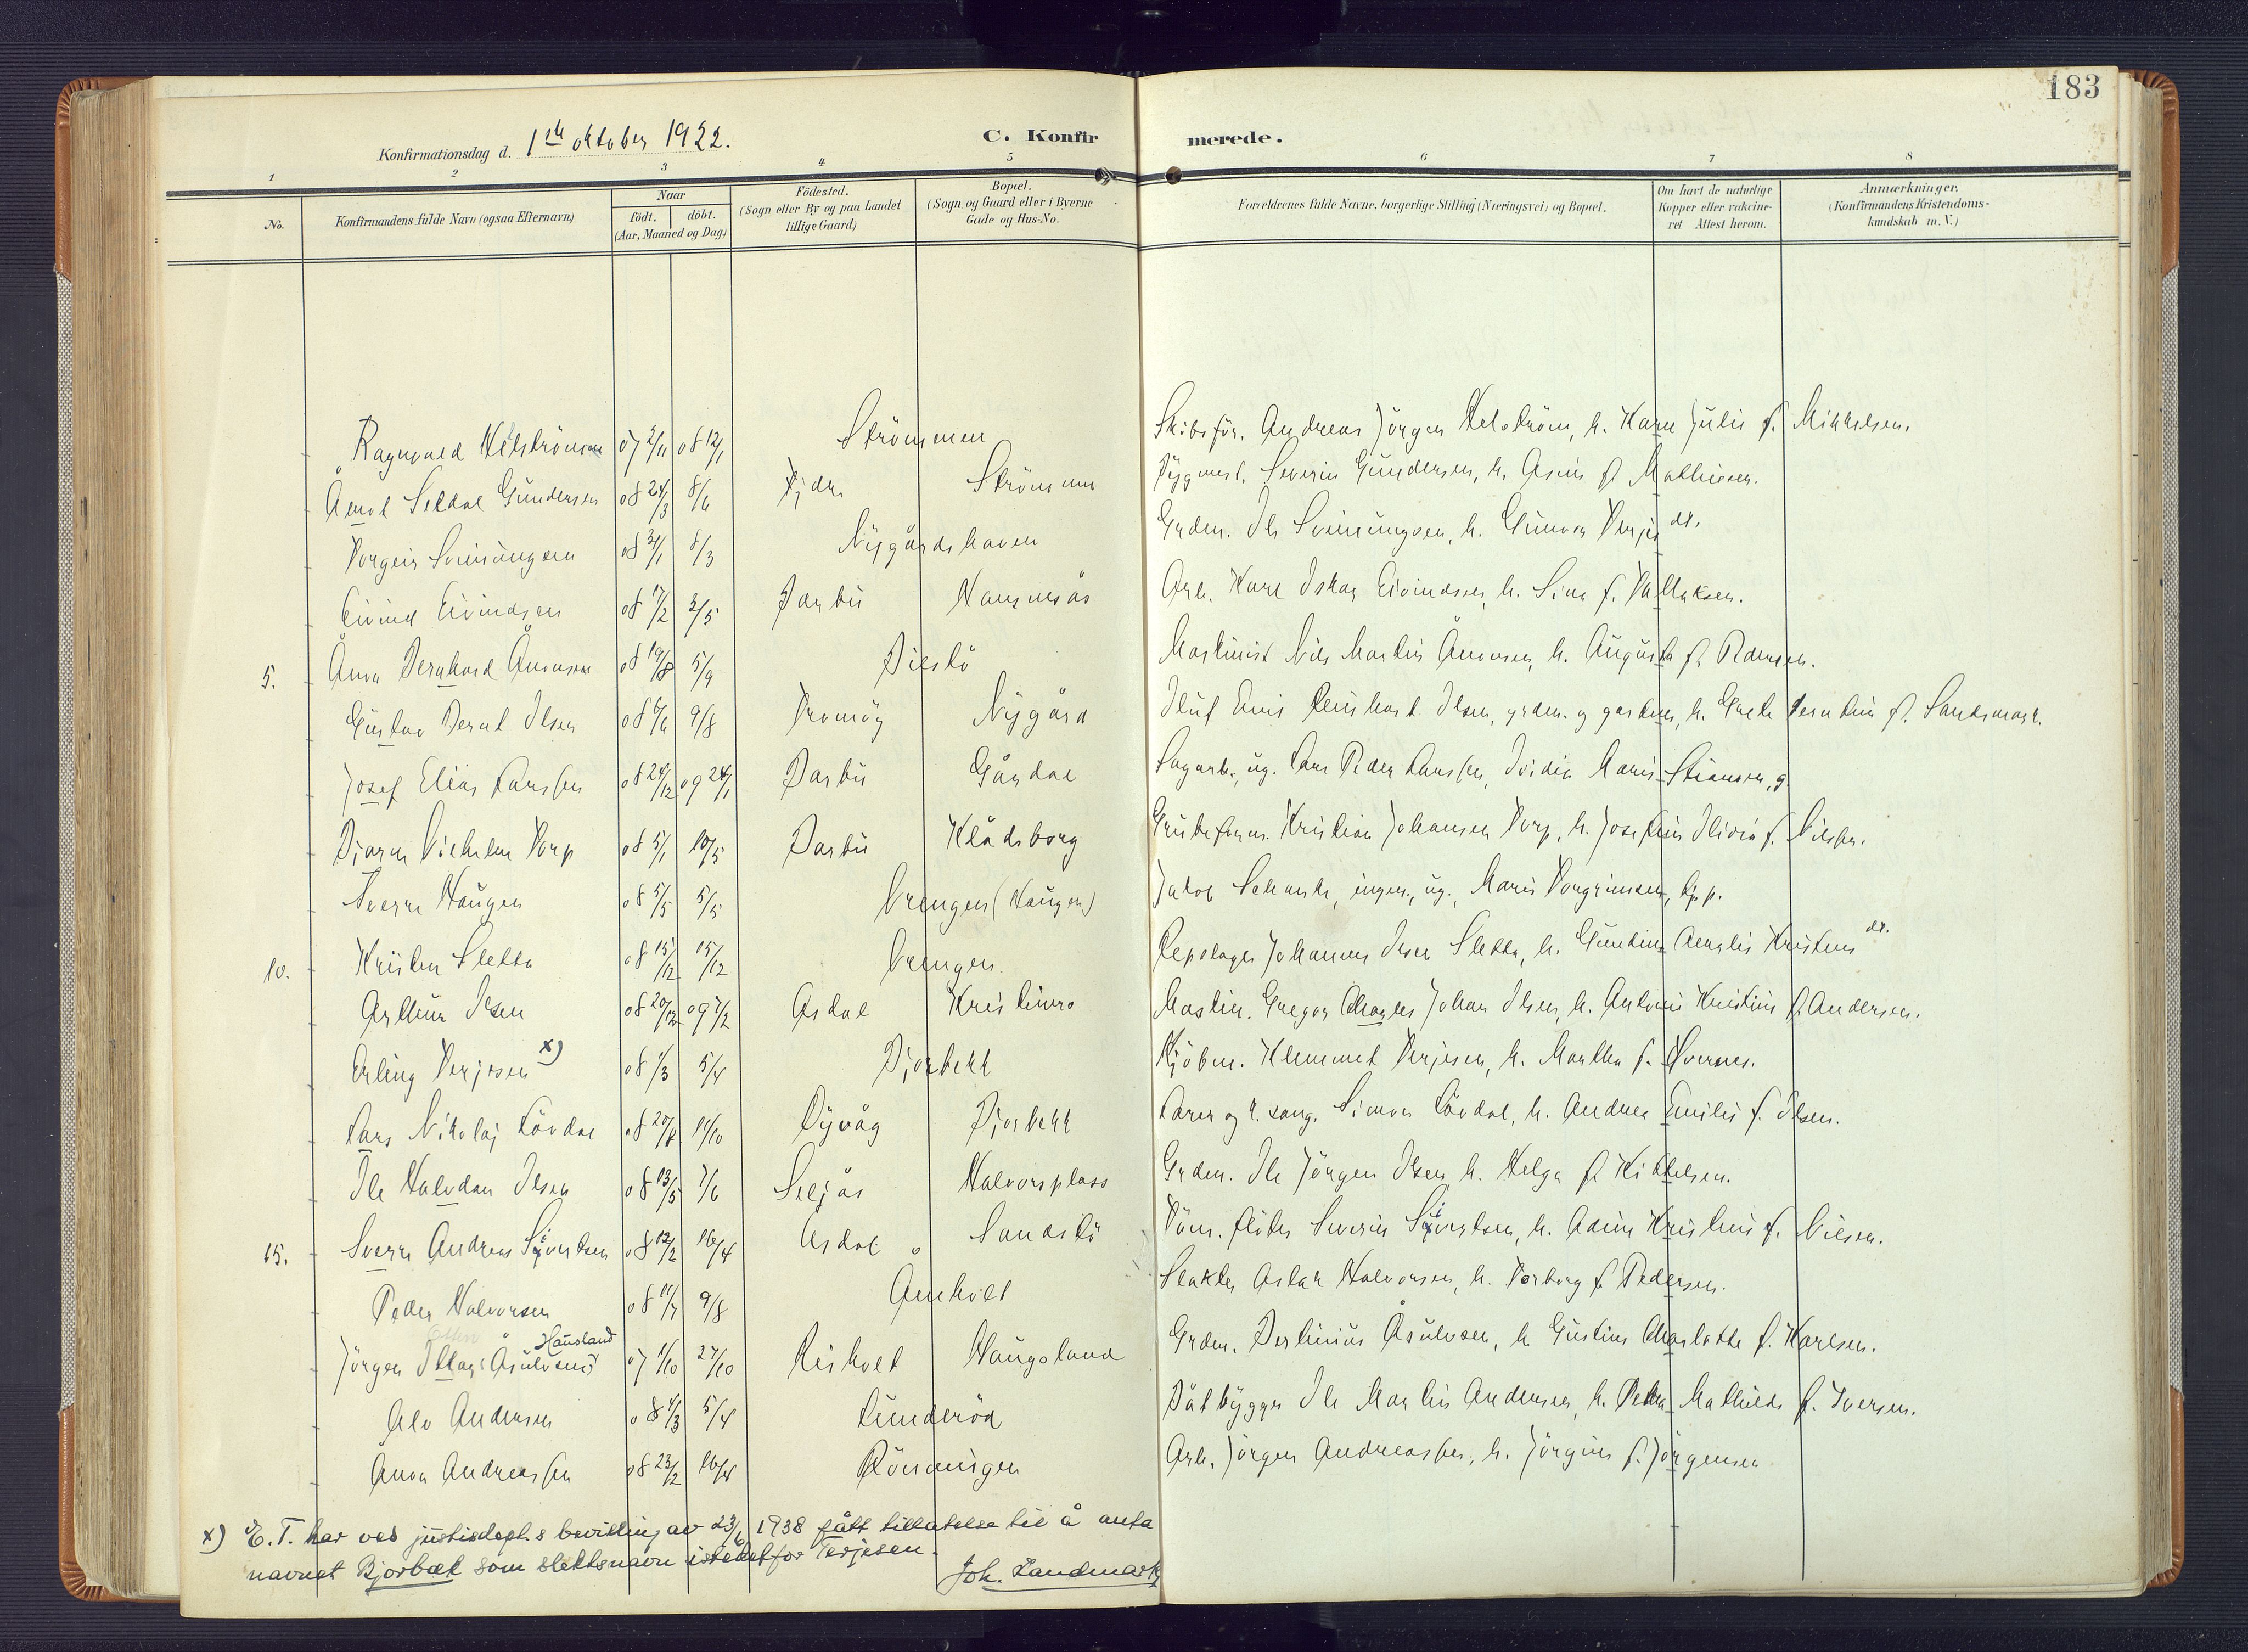 183
Konfirmationsdag d. 1ste oktober 1922.
C. Konfirmerede.
1 2 3 4 5 6 7 8
No.
Konfirmandens fulde Navn (ogsaa Efternavn)
Naar
födt. döbt.
(Aar, Maaned og Dag)
Födested.
(Sogn eller By og paa Landet
tillige Gaard)
Bopæl.
(Sogn og Gaard eller i Byerne
Gade og Hus-No.
Forældrenes fulde Navne, borgerlige Stilling (Næringsvei) og Bopæl.
Om havt de naturlige
Kopper eller vakcine-
ret Attest herom.
Anmærkninger.
(Konfirmandens Kristendoms-
kundskab m. V.)
Ragnvald 07 2/11 08 12/1 Strömmen Skibsför. Andreas Jörgen Helström, h. Kara Julie f. Mikkelsen.
Gundersen 08 24/3 8/6 Strömmen Severin Gundersen, h. Asine f. Mathiesen.
Torgeir Sveinungsen 08 31/1 8/3 Nygårdshaven Grdm. Ole Sveinungsen, h. Gunvor Terjesdt.
Eivind Eivindsen 08 17/2 3/5 Barbu Arb. Karl Oskar Eivindsen, h. Sina f. Tallaksen.
5. Anon Bernhard Anonsen 08 19/8 5/9 Bilstö Maskinist Nils Martin Anonsen, h. Augusta f. Pedersen.
Gustav Bernt Olsen 08 6/6 9/8 Tromöy Nygård Oluf Reinhart Olsen, grdm. og gartner, h. Grete Berntine f. Sandsmark.
Josef Elias Larssen 08 24/12 09 24/1 Barbu Gårdal Sagarb., ug. Lars Peder Larssen, Ovidia Marie Stiansen, g.
Bjarne Vilhelm Torp 08 5/1 10/5 Barbu Klådeborg Kristian Johansen Torp, h. Josefine Olivia f. Nilsen.
Sverre Haugen 08 5/5 5/5 Vrengen (Haugen) Jakob Schanke, ingen., ug., Marie Torgrimsen,
10. Kristen Sletta 08 15/12 15/12 Vrengen Repslager Johannes Olsen Sletta, h. Gundine Amalie Kristensdt.
Arthur Olsen 08 20/12 09 7/2 Asdal Kristinero Maskin. Gregor Charles Johan Olsen, h. Antonie Kristine f. Andersen.
Erling Terjesen x) 08 1/3 5/4 Bjorbekk Kjöbm. Klemmet Terjesen, h. Martha f. Hvernes.
Lars Nikolaj Lövdal 08 20/8 11/10 Dyvåg Bjorbekk Lærer og k. sang. Simon Lövdal, h. Andrea Emilie f. Olsen.
Ole Halvdan Olsen 08 13/5 7/6 Seljås Halvorsplass Grdm. Ole Jörgen Olsen, h. Helga f. Kittelsen.
15. Sverre Andreas Sivertsen 08 12/2 16/4 Asdal Sandstö Töm. flöter Severin Sivertsen, h. Adine Kristine f. Nilsen.
Peder Halvorsen 08 11/7 9/8 Amholt Slakter Aslak Halvorsen, h. Torborg f. Pedersen.
Hausland
Jörgen Åsulvsen 07 1/10 27/10 Risholt Haugsland Grdm. Berlinius Åsulvsen, h. Gustine Charlotte f. Karlsen.
Alv Andersen 08 4/3 5/4 Lunderöd Båtbygger Ole Martin Andersen, h. Petra Mathilde f. Iversen.
Anon Andreassen 08 23/2 16/4 Rönningen Arb. Jörgen Andreassen, h. Jörgine f. Jörgensen
x) E. T. har ved justisdept.s bevilling av 23/6 1938 fått tillatelse til å anta
navnet Bjorbæk som slektsnavn istedetfor Terjesen.
Joh. Landmark